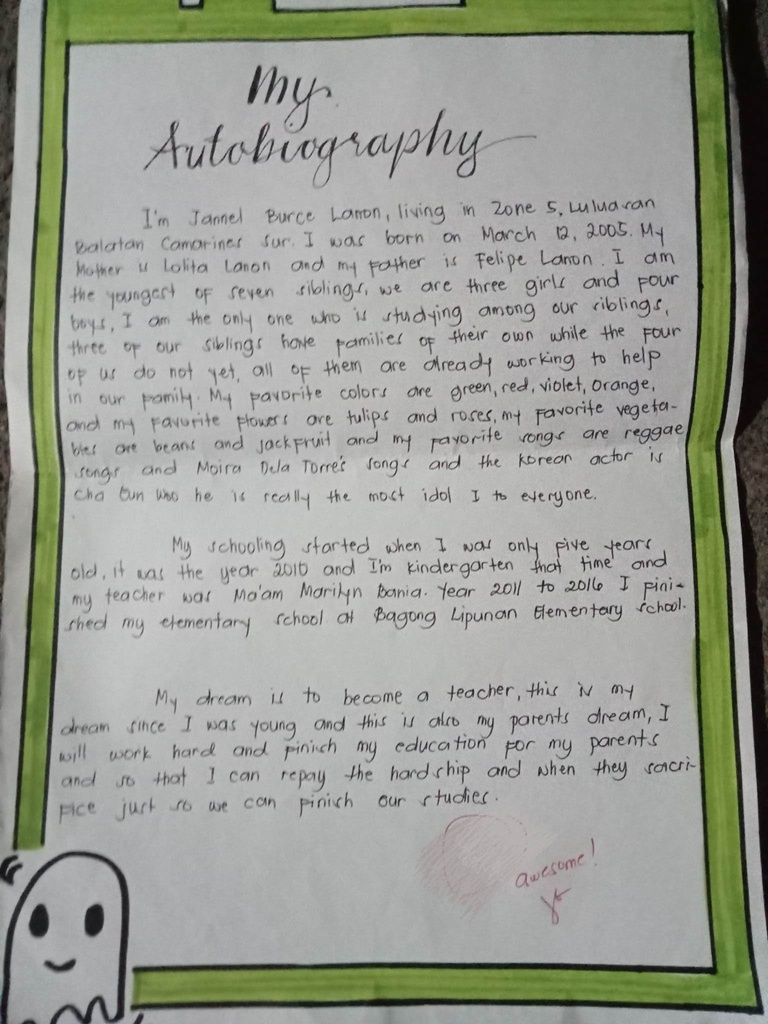 My
Autobiography
I'm Jannel Burce Lanon, living in Zone 5, Luluasan
Balatan Camarines Sur. I was born on March 12, 2005. My
Mother is Lolita Lanon and my Father is Felipe Lanon. I am
the youngest of seven siblings, we are three girls and four
boys, I am the only one who is studying among our siblings,
three of our siblings have families of their own while the four
of us do not yet, all of them are already working to help
in our family. My favorite colors are green, red, violet, orange,
and my favorite flowers are tulips and roses, my favorite vegeta-
bles are beans and jackfruit and my favorite songs are reggae
songs and Moira Dela Torre's songs and the Korean actor is
Cha Eun Who he is really the most idol I to everyone.
My schooling started when I was only five years
old, it was the year 2010 and I'm kindergarten that time and
my teacher was Ma'am Marilyn Bania. Year 2011 to 2016 I fini-
shed my elementary school at Bagong Lipunan Elementary School.
My dream is to become a teacher, this is my
dream since I was young and this is also my parents dream, I
will work hard and finish my education for my parents
and so that I can repay the hardship and when they sacri-
fice just so we can finish our studies.
awesome!